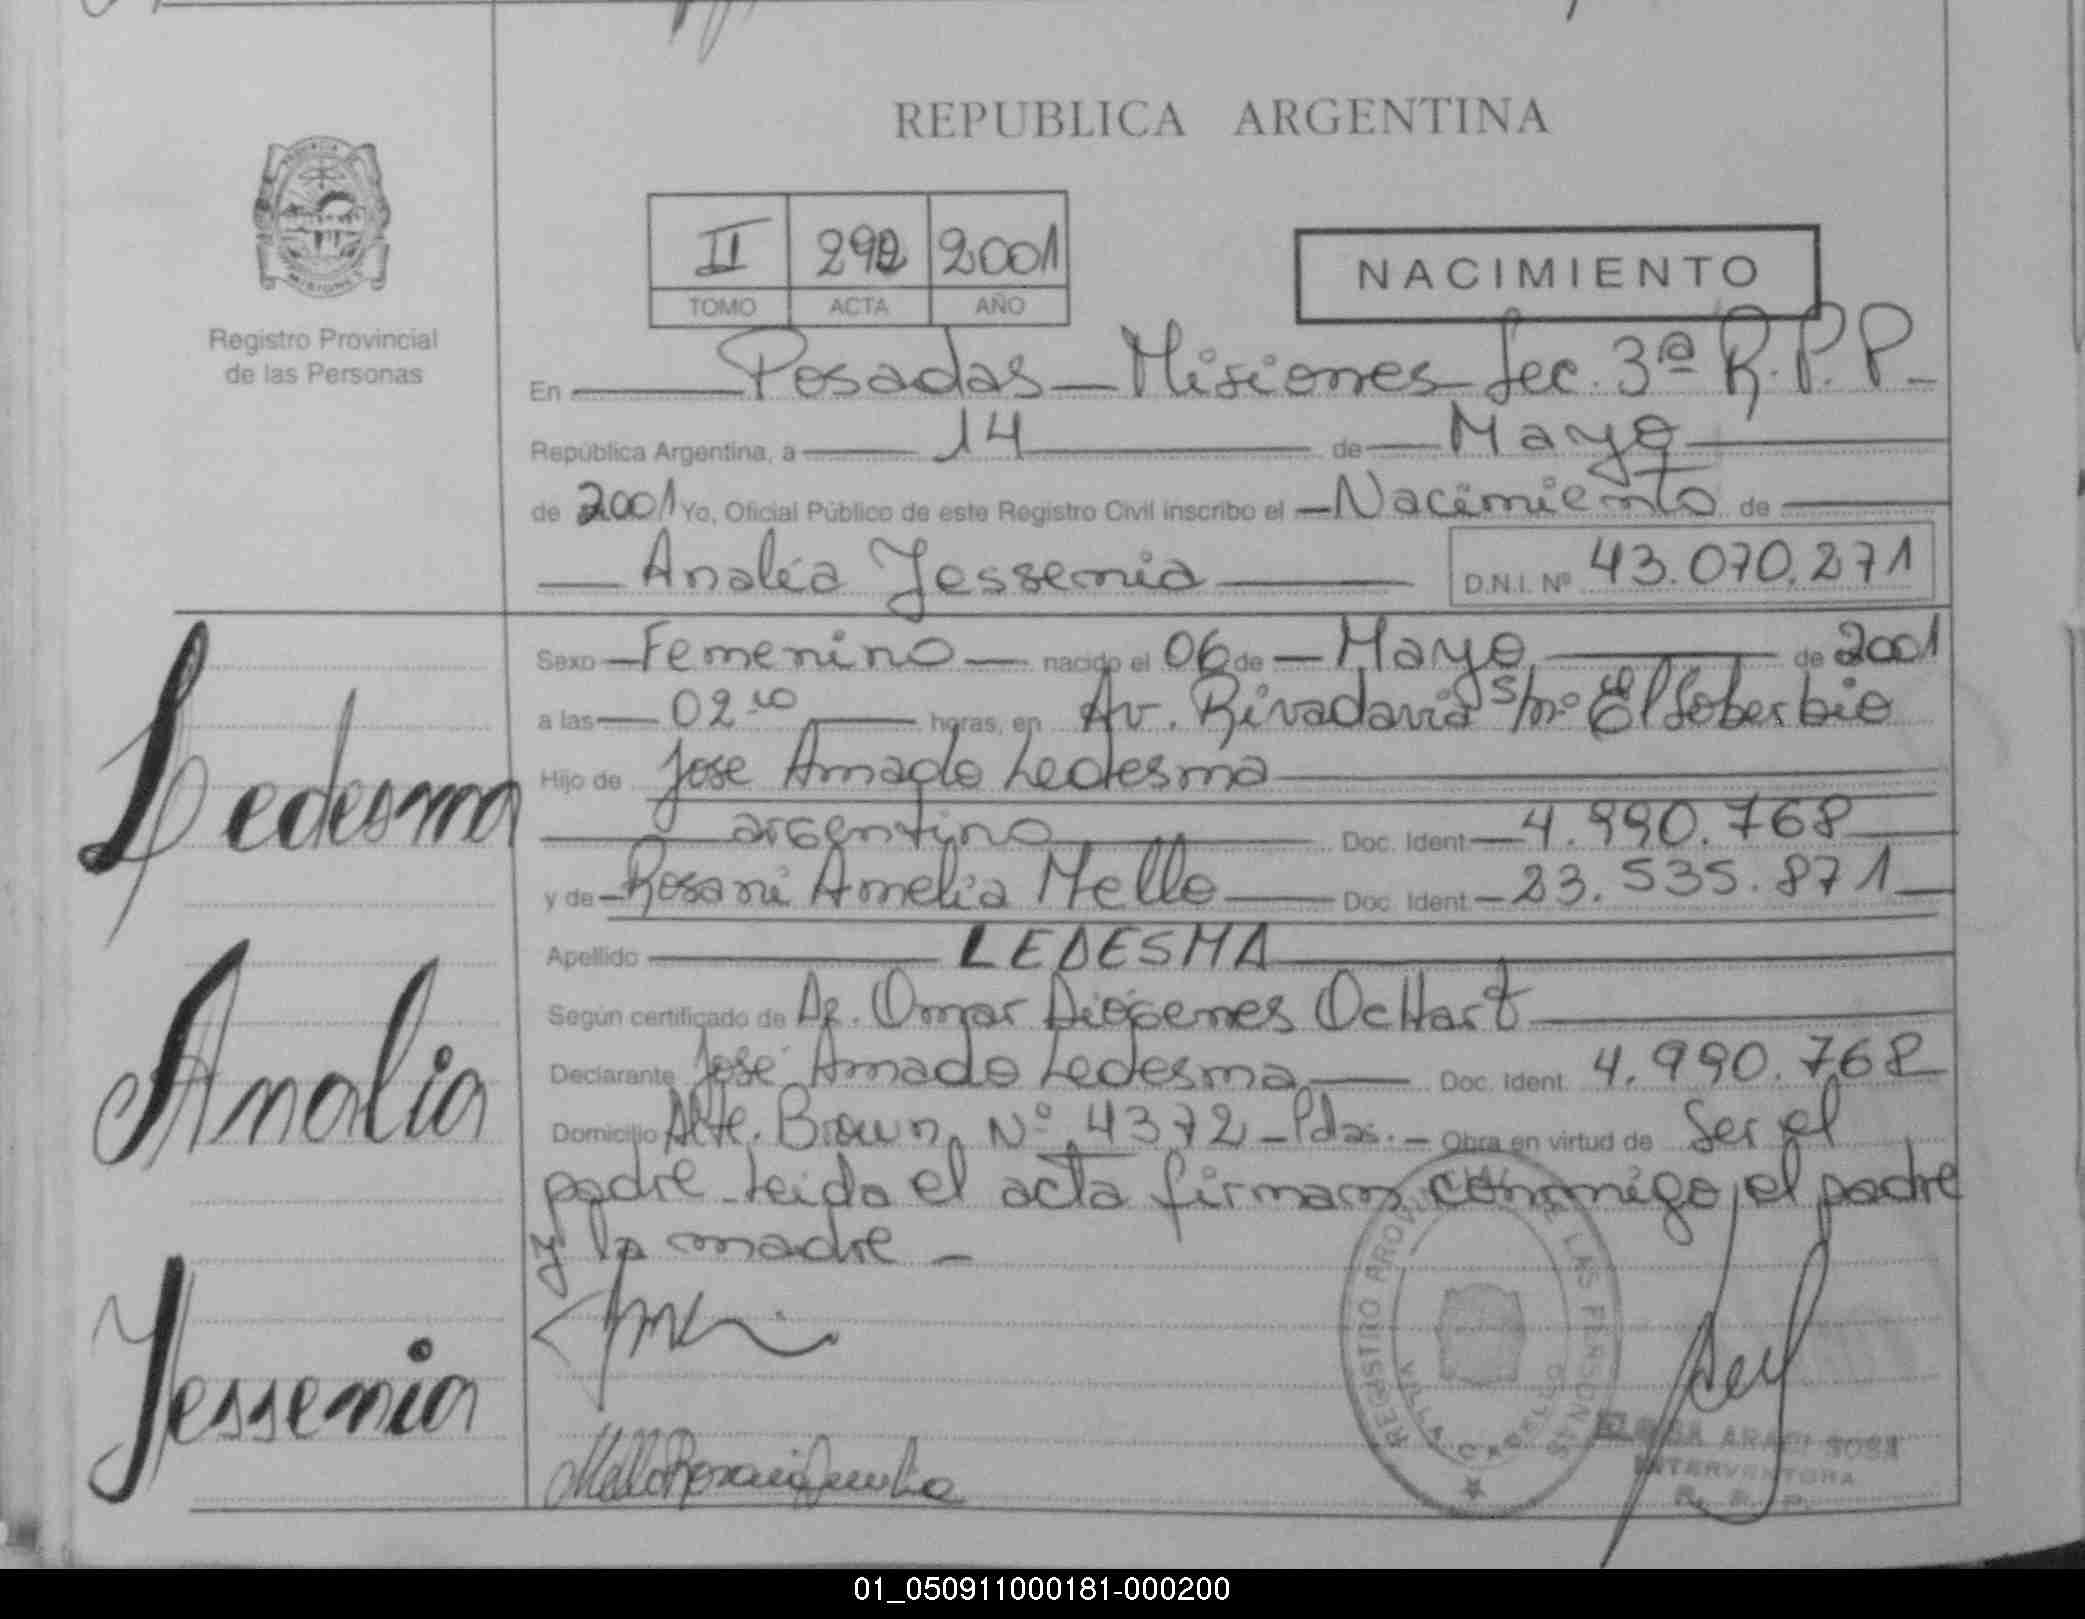 REPUBLICA ARGENTINA
II 2001
TOMO ACTA AÑO
NACIMIENTO
Registro Provincial
de las Personas
En Posadas - Misiones Sec. 3ª R.P.P.-
República Argentina, a 14 de Mayo
de 2001 Yo, Oficial Público de este Registro Civil inscribo el - Nacimiento de
Analía Jessenia D.N.I. Nº 43.070.271
Sexo - Femenino - nacido el 06 de - Mayo de 2001
a las 02 horas, en Av. Rivadavia s/nº El Soberbio
Hijo de Jose Amado Ledesma
argentino Doc. Ident 4.990.768
y de Rosani Amelia Mello Doc. Ident 23.535.871
Apellido LEDESMA
Según certificado de Dr. Omar Diógenes Ochart
Declarante José Amado Ledesma Doc. Ident. 4.990.768
Domicilio Alte. Brown Nº 4372 - Pdas. - Obra en virtud de Ser el
padre - Leida el acta firman conmigo, el padre
y la madre -
Ledesma
Analia
Jessenia
Mello Rosani Amelia
REGISTRO PROV DE LAS PERSONAS
VILLA CABELLO
ARACI SOSA
INTERVENTORA
R. P. P.
01_050911000181-000200